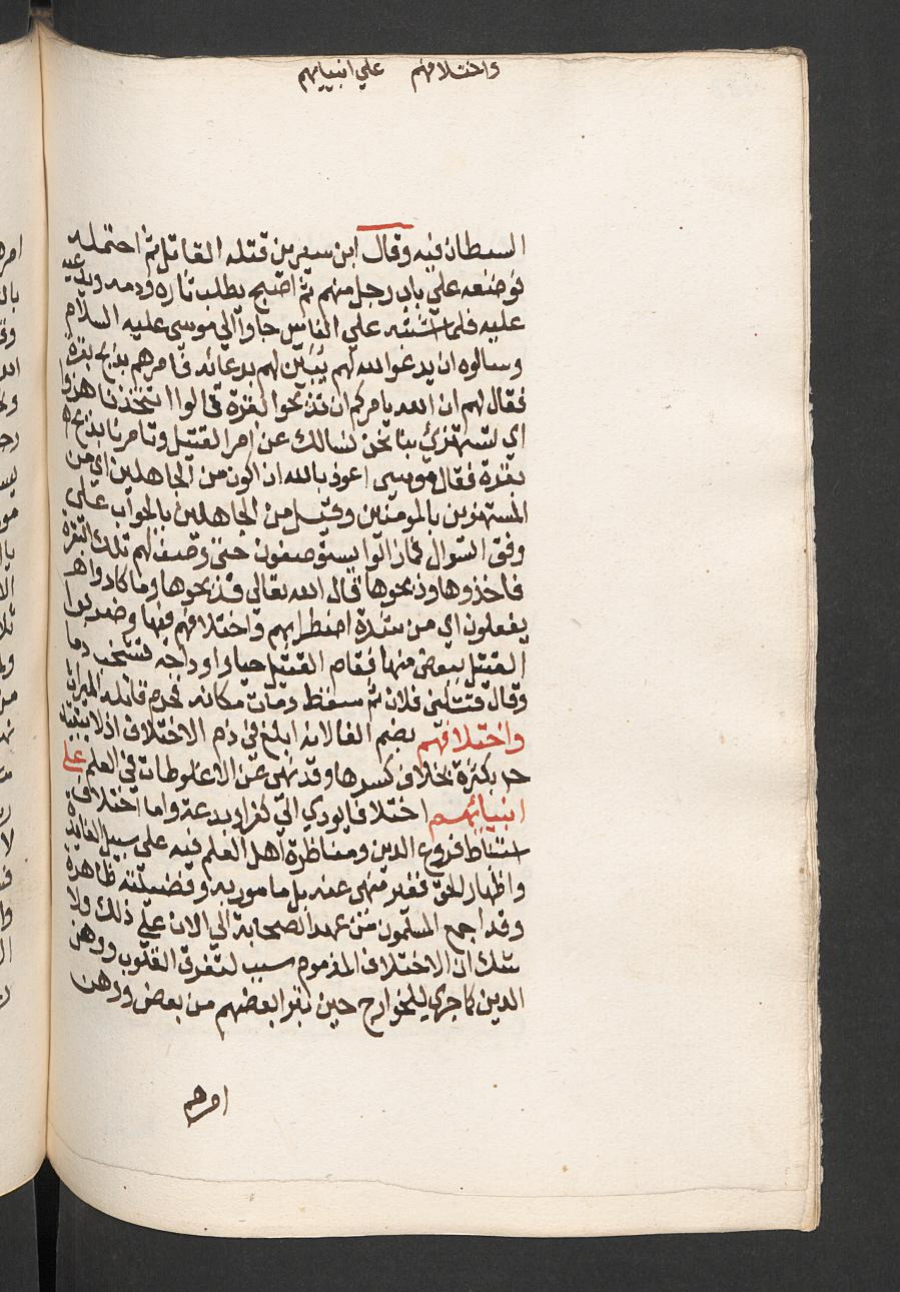 واختلافهم على انبيايهم
السطان فيه وقال ابن سيرين قتله القاتل ثم احتمله
فوضعه على باب رجل منهم ثم اصبح يطلب ثاره ودمه ويدعيه
عليه فلما اشتبه على الناس جاوا الى موسى عليه السلام
وسالوه ان يدعو الله لهم يبين لهم بدعائه فامرهم بذبح بقرة
فقال لهم ان الله يامركم ان تذبحوا بقرة قالوا اتتخذنا هزوا
اي تستهزئ بنا نحن نسالك عن امر القتيل وتامرنا بذبح
بقرة فقال موسى اعوذ بالله ان اكون من الجاهلين اي من
المستهزين بالمومنين وقيل من الجاهلين بالجواب على
وفق السوال فمازالوا يستوصفون حتى وصف لهم تلك البقرة
فاخذوها وذبحوها قال الله تعالى فذبحوها وما كادوا
يفعلون اي من شدة اضطرابهم واختلافهم فيها وضربوا
القتيل ببعض منها فقام القتيل حيا واوداجه تشخب دما
وقال قتلني فلان ثم سقط ومات مكانه فحرم قاتله الميراث
واختلافهم بضم الفا لانه ابلغ في ذم الاختلاف اذ لا يتقيد
ح بكثرة بخلاف كسرها وقد نهى عن الاغلوطات في العلم على
انبيائهم اختلافا يودي الى كفر او بدعة واما اختلاف
استنباط فروع الدين ومناظرة اهل العلم فيه على سبيل الفايدة
واظهار الحق فغير منهى عنه بل مامور به وفضيلته ظاهرة
وقد اجمع المسلمون من عهد الصحابة الى الان على ذلك ولا
شك ان الاختلاف المذموم سبب لتفرق القلوب ووهن
الدين كما جرى للخوارج حين تبرا بعضهم من بعض ووهن
امرهم